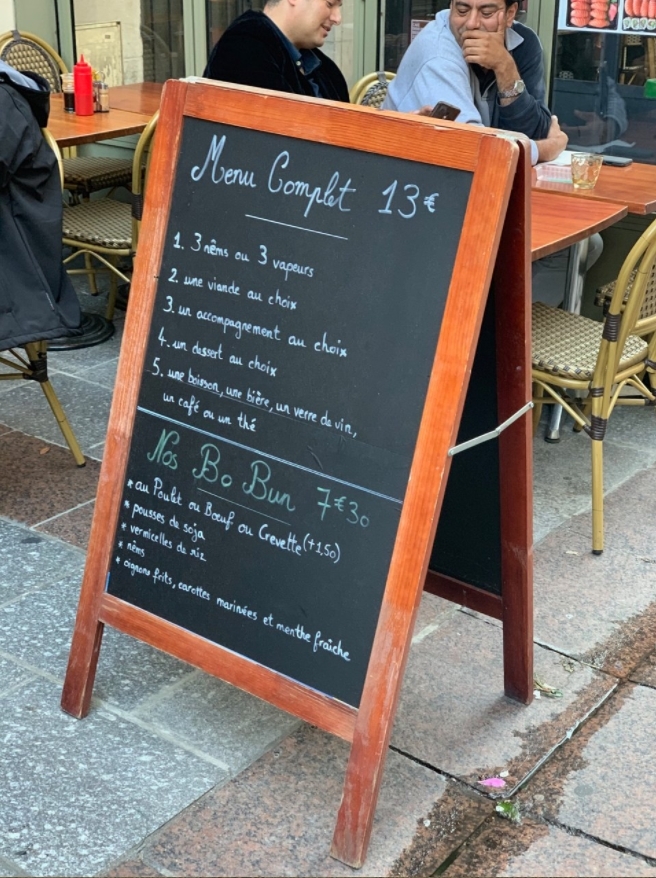 Menu Complet 13€
1. 3 nêms ou 3 vapeurs
2. une viande au choix
3. un accompagnement au choix
4. un dessert au choix
5. une boisson, une bière, un verre de vin,
un café ou un thé
Nos Bo Bun 7€30
* au Poulet ou Bœuf ou Crevette (+1,50)
* pousses de soja
* vermicelles de riz
* nêms
* oignons frits, carottes marinées et menthe fraîche